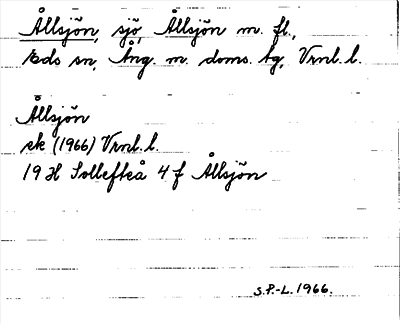 Ållsjön, sjö, Ållsjön m. fl.,
Eds sn, Ång. m. doms. tg, Vrnl. l.
Ållsjön
ek (1966) Vrnl. l.
19 H Sollefteå 4 f Ållsjön
S.P.-L. 1966.